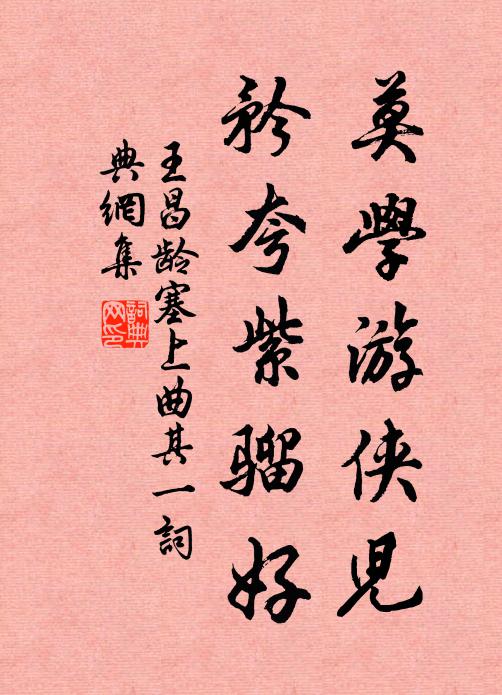 莫學游俠兒
矜夸紫騮好
王昌龄塞上曲其一詞
典網集
詞典
网印